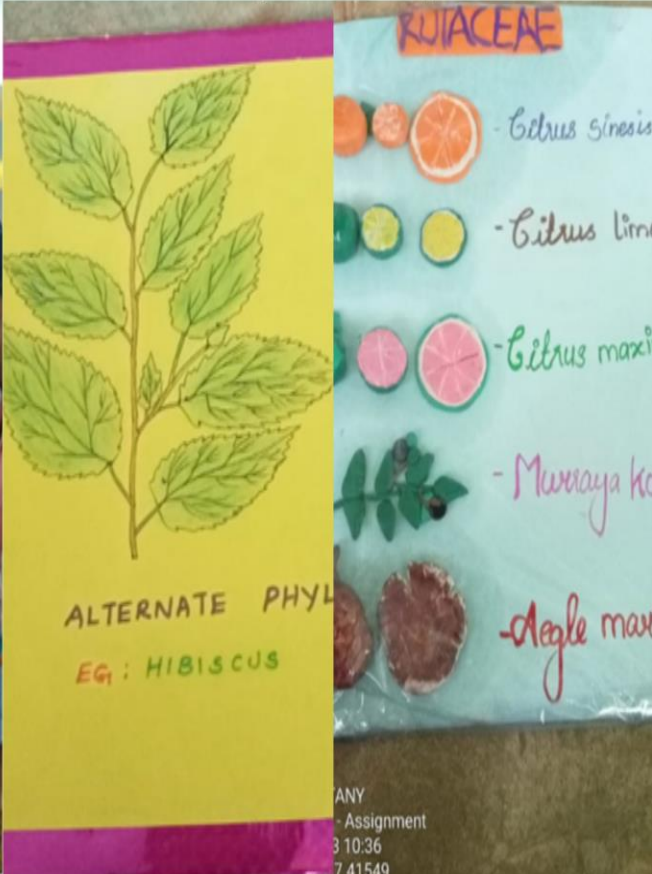 ALTERNATE PHYL
EG: HIBISCUS
RUTACEAE
- Citrus sinesis
- Citrus lim
- Citrus maxi
- Murraya Ko
- Aegle mar
ANY
- Assignment
3 10:36
7.41549